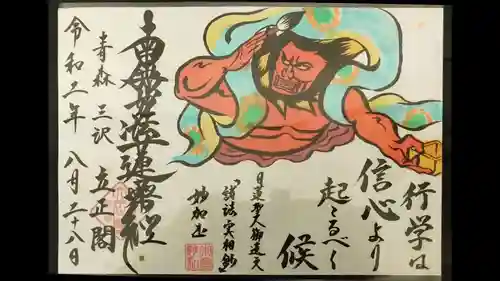 行学は
信心より
起こるべく
候
日蓮聖人御遺文
『諸法実相鈔』
妙加出
南無妙法蓮華経
青森 三沢 立正閣
令和二年 八月 二十八日